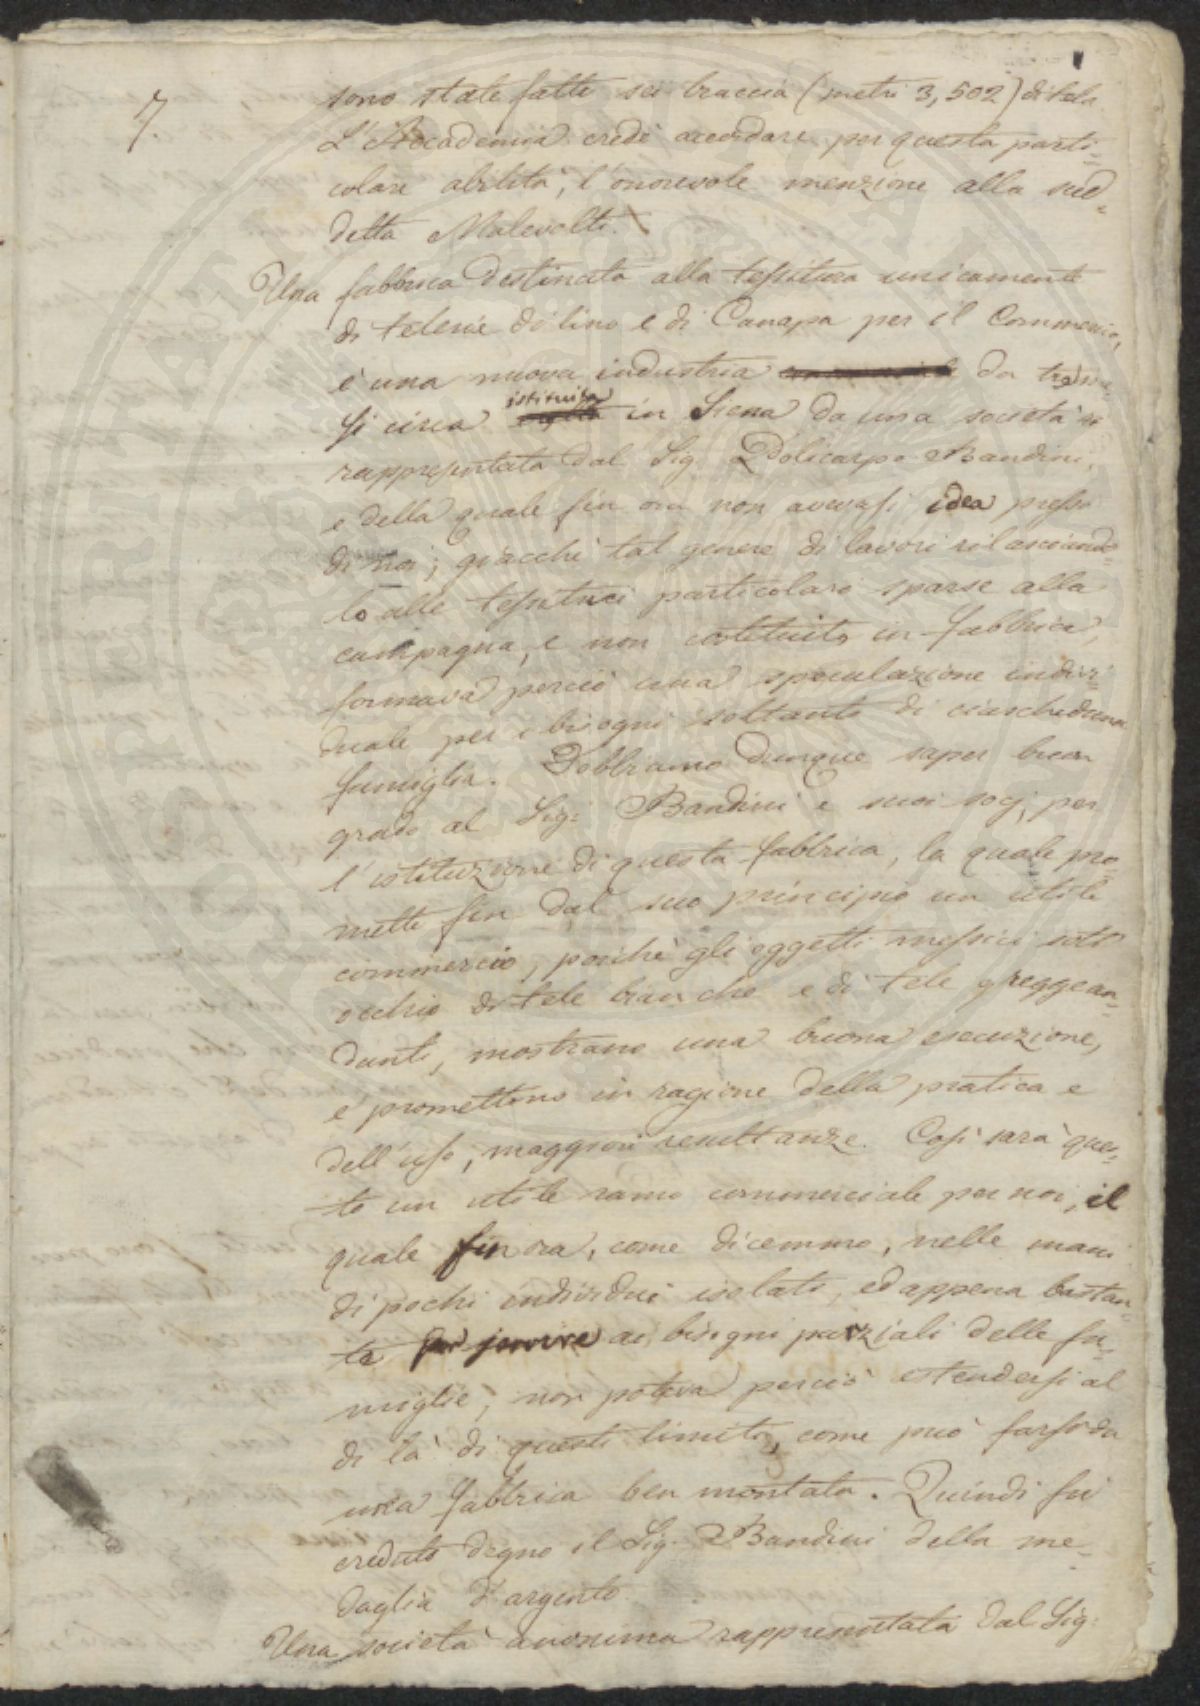 7.
sono state fatte sei braccia (metri 3,502) di tela.
L'Accademia credè accordare per questa parti=
colare abilità, l'onorevole menzione alla sud=
detta Malevolti.
Una fabbrica destinata alla tessitura unicamente
di telerie di lino e di Canapa per il Commercio,
è una nuova industria da
si circa istituita in Siena da una società
rappresentata dal Sig. Policarpo Bandini,
e della quale fin ora non avevasi idea presso
di noi; giacchè tal genere di lavori rilasciando=
lo alle tessitrici particolari sparse alla
campagna, e non costituito in fabbrica,
formava perciò una speculazione indivi=
duale per i bisogni soltanto di ciascheduna
famiglia. Dobbiamo dunque saper buon
grado al Sig: Bandini e suoi socj, per
l'istituzione di questa fabbrica, la quale pro=
mette fin dal suo principio un utile
commercio, poichè gli oggetti messici sott'
occhio di tele bianche e di tele greggie an=
danti, mostrano una buona esecuzione,
e promettono in ragione della pratica e
dell'uso, maggiori resultanze. Così sarà ques=
to un utile ramo commerciale per noi, il
quale finora, come dicemmo, nelle mani
di pochi individui isolati, ed appena bastan=
te per servire ai bisogni parziali delle fa=
miglie, non poteva perciò estendersi al
di là di questi limiti, come può farsi da
una fabbrica ben montata. Quindi fu
creduto degno il Sig. Bandini della me=
daglia d'argento.
Una società anonima rappresentata dal Sig: